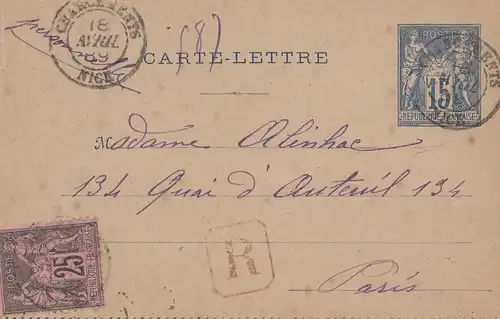 CHARGEMENTS
18
AVRIL
89
NICE
(8)
CARTE-LETTRE
POSTE
15
RÉPUBLIQUE FRANÇAISE
Madame Alinhac
134 Quai d'Auteuil 134
Paris
POSTE
25
RÉPUBLIQUE FRANÇAISE